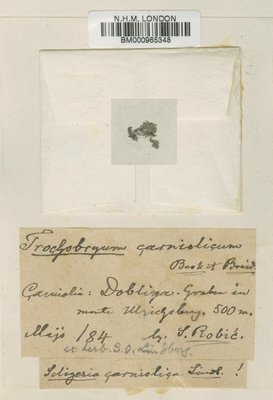 N.H.M. LONDON
BM000965348
Trochobryum carniolicum
Besk et Breid.
Carniolia: Dobliza-Graben in
monte Ulrichsberg. 500 m.
Majo 184 lg. S. Robič.
et herb. S.O. Lindberg.
Seligeria carniolica Lindb. !